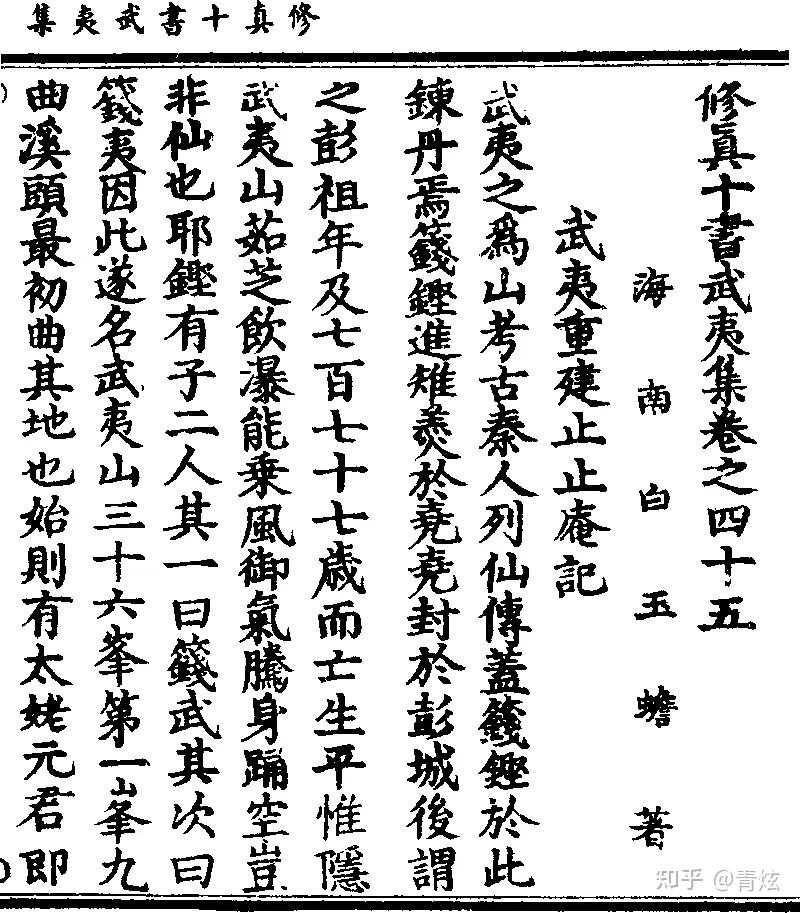 修真十書武夷集
修眞十書武夷集卷之四十五
海南白玉蟾著
武夷重建止止庵記
武夷之爲山考古秦人列仙傳蓋籛鏗於此
鍊丹焉籛鏗進雉羹於堯堯封於彭城後謂
之彭祖年及七百七十七歲而亡生平惟隱
武夷山茹芝飲瀑能乗風御氣騰身踊空豈
非仙也耶鏗有子二人其一曰籛武其次曰
籛夷因此遂名武夷山三十六峯第一峯九
曲溪頭最初曲其地也始則有太姥元君即
知乎 @青炫